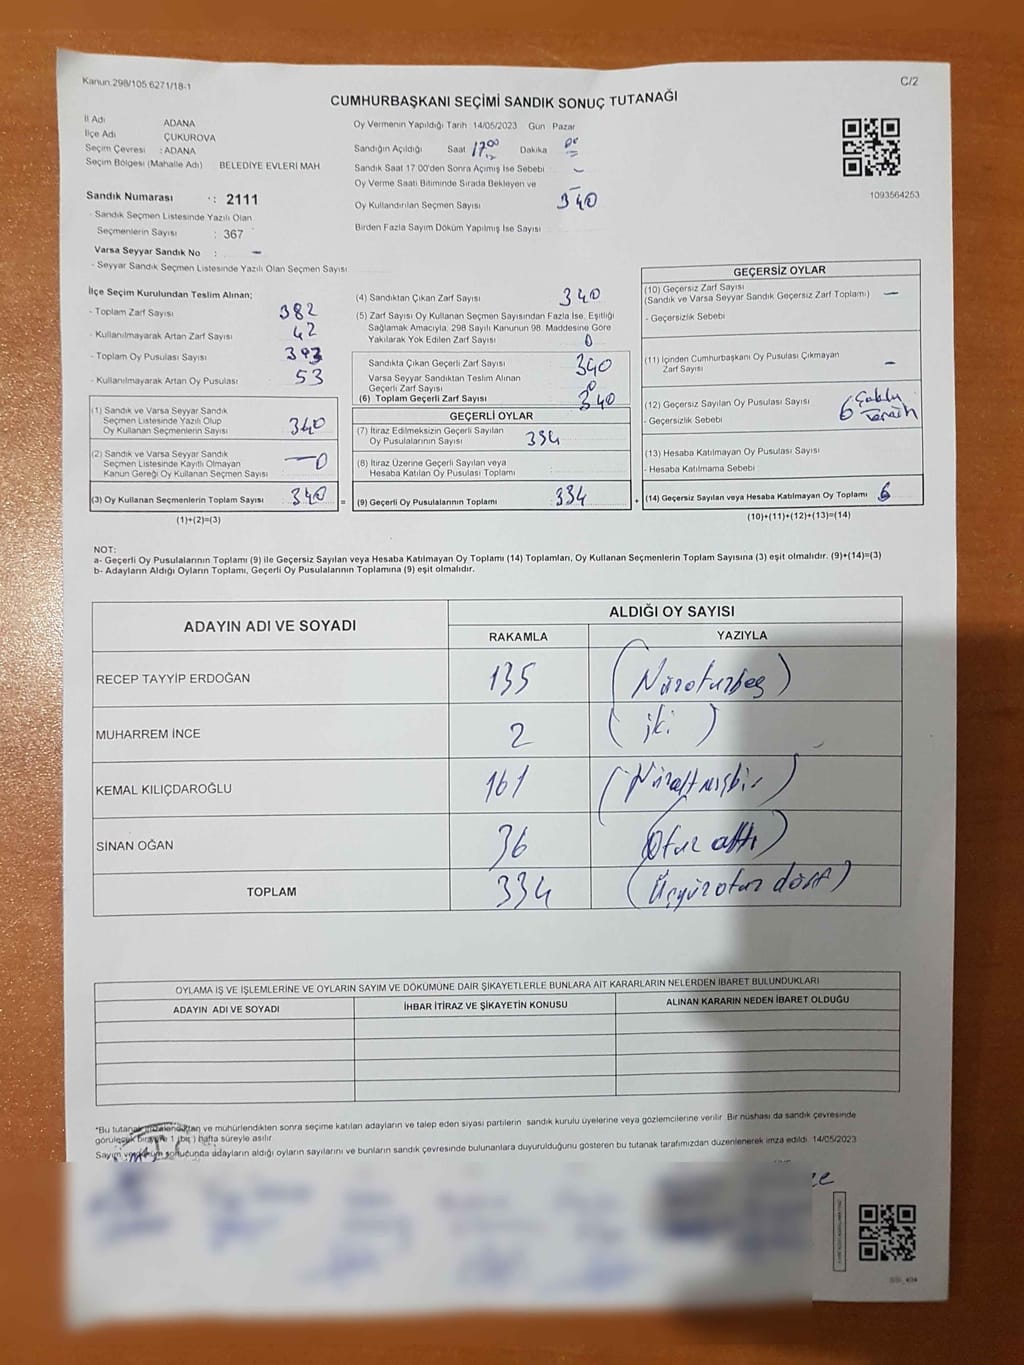 Kanun 298/105 6271/18-1
C/2
CUMHURBAŞKANI SEÇİMİ SANDIK SONUÇ TUTANAĞI
İl Adı ADANA
İlçe Adı ÇUKUROVA
Seçim Çevresi : ADANA
Seçim Bölgesi (Mahalle Adı) BELEDİYE EVLERİ MAH
Sandık Numarası : 2111
- Sandık Seçmen Listesinde Yazılı Olan
Seçmenlerin Sayısı : 367
Varsa Seyyar Sandık No : -
- Seyyar Sandık Seçmen Listesinde Yazılı Olan Seçmen Sayısı
Oy Vermenin Yapıldığı Tarih 14/05/2023 Gün Pazar
Sandığın Açıldığı Saat 17:00 Dakika 00
Sandık Saat 17:00'den Sonra Açımış İse Sebebi -
Oy Verme Saati Bitiminde Sırada Bekleyen ve
Oy Kullandırılan Seçmen Sayısı 340
Birden Fazla Sayım Döküm Yapılmış İse Sayısı
1093564253
İlçe Seçim Kurulundan Teslim Alınan;
- Toplam Zarf Sayısı 382
- Kullanılmayarak Artan Zarf Sayısı 42
- Toplam Oy Pusulası Sayısı 393
- Kullanılmayarak Artan Oy Pusulası 53
(1) Sandık ve Varsa Seyyar Sandık
Seçmen Listesinde Yazılı Olup
Oy Kullanan Seçmenlerin Sayısı 340
(2) Sandık ve Varsa Seyyar Sandık
Seçmen Listesinde Kayıtlı Olmayan
Kanun Gereği Oy Kullanan Seçmen Sayısı 0
(3) Oy Kullanan Seçmenlerin Toplam Sayısı 340 =
(1)+(2)=(3)
(4) Sandıktan Çıkan Zarf Sayısı 340
(5) Zarf Sayısı Oy Kullanan Seçmen Sayısından Fazla İse, Eşitliği
Sağlamak Amacıyla, 298 Sayılı Kanunun 98. Maddesine Göre
Yakılarak Yok Edilen Zarf Sayısı 0
Sandıkta Çıkan Geçerli Zarf Sayısı 340
Varsa Seyyar Sandıktan Teslim Alınan
Geçerli Zarf Sayısı 0
(6) Toplam Geçerli Zarf Sayısı 340
GEÇERLİ OYLAR
(7) İtiraz Edilmeksizin Geçerli Sayılan
Oy Pusulalarının Sayısı 334
(8) İtiraz Üzerine Geçerli Sayılan veya
Hesaba Katılan Oy Pusulası Toplamı
(9) Geçerli Oy Pusulalarının Toplamı 334 +
GEÇERSİZ OYLAR
(10) Geçersiz Zarf Sayısı
(Sandık ve Varsa Seyyar Sandık Geçersiz Zarf Toplamı) -
- Geçersizlik Sebebi
(11) İçinden Cumhurbaşkanı Oy Pusulası Çıkmayan
Zarf Sayısı -
(12) Geçersiz Sayılan Oy Pusulası Sayısı 6
- Geçersizlik Sebebi
(13) Hesaba Katılmayan Oy Pusulası Sayısı
- Hesaba Katılmama Sebebi
(14) Geçersiz Sayılan veya Hesaba Katılmayan Oy Toplamı 6
(10)+(11)+(12)+(13)=(14)
NOT:
a- Geçerli Oy Pusulalarının Toplamı (9) ile Geçersiz Sayılan veya Hesaba Katılmayan Oy Toplamı (14) Toplamları, Oy Kullanan Seçmenlerin Toplam Sayısına (3) eşit olmalıdır. (9)+(14)=(3)
b- Adayların Aldığı Oyların Toplamı, Geçerli Oy Pusulalarının Toplamına (9) eşit olmalıdır.
ADAYIN ADI VE SOYADI ALDIĞI OY SAYISI
RAKAMLA YAZIYLA
RECEP TAYYİP ERDOĞAN 135 (Yüzotuzbeş)
MUHARREM İNCE 2 (iki)
KEMAL KILIÇDAROĞLU 161 (Yüzaltmışbir)
SİNAN OĞAN 36 (Otuz altı)
TOPLAM 334 (Üçyüzotuz dört)
OYLAMA İŞ VE İŞLEMLERİNE VE OYLARIN SAYIM VE DÖKÜMÜNE DAİR ŞİKAYETLERLE BUNLARA AİT KARARLARIN NELERDEN İBARET BULUNDUKLARI
ADAYIN ADI VE SOYADI İHBAR İTİRAZ VE ŞİKAYETİN KONUSU ALINAN KARARIN NEDEN İBARET OLDUĞU
*Bu tutanak imzalandıktan ve mühürlendikten sonra seçime katılan adayların ve talep eden siyasi partilerin sandık kurulu üyelerine veya gözlemcilerine verilir. Bir nüshası da sandık çevresinde
görülecek bir yere 1 (bir) hafta süreyle asılır.
Sayım ve döküm sonucunda adayların aldığı oyların sayılarını ve bunların sandık çevresinde bulunanlara duyurulduğunu gösteren bu tutanak tarafımızdan düzenlenerek imza edildi. 14/05/2023